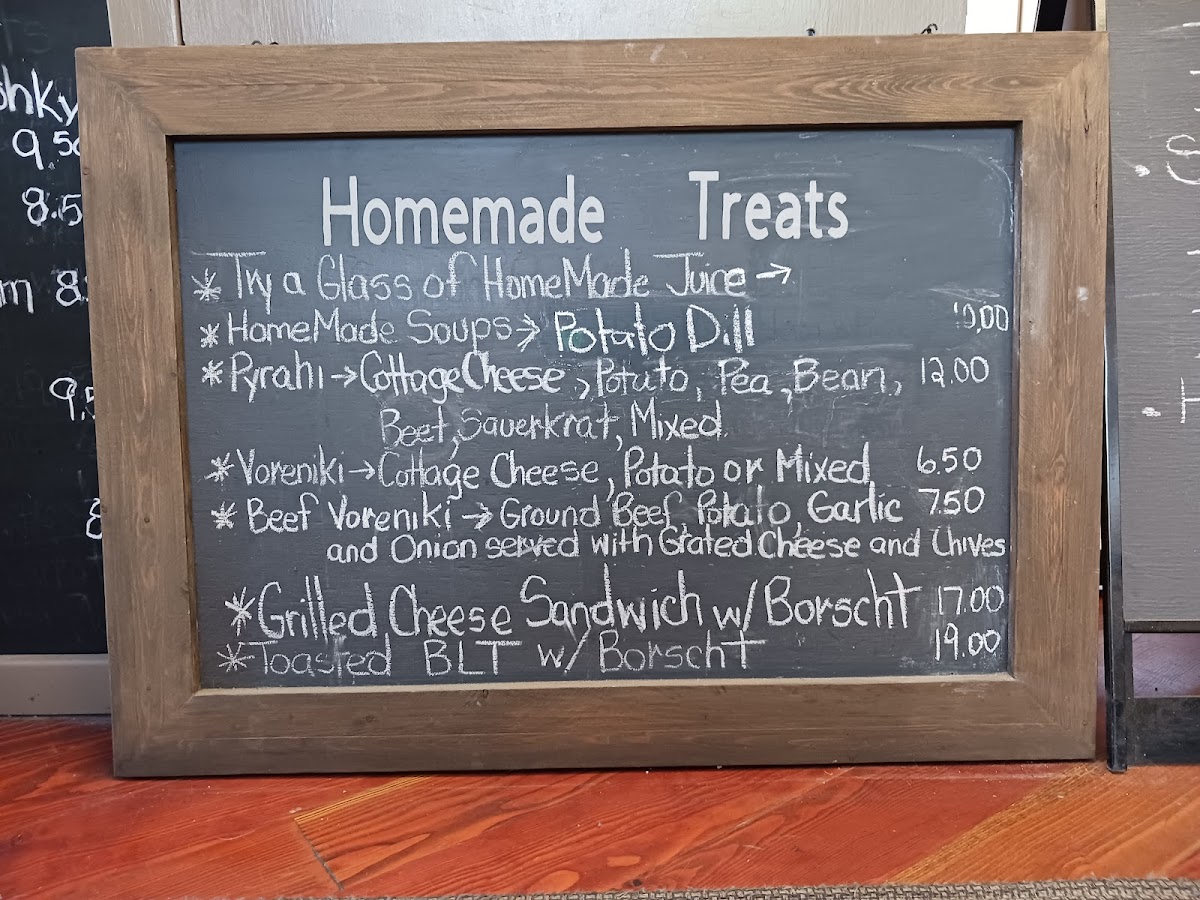 Homemade Treats
* Try a Glass of HomeMade Juice →
* HomeMade Soups → Potato Dill 10,00
* Pyrahi → Cottage Cheese, Potato, Pea, Bean, 12.00
Beef, Sauerkrat, Mixed
* Voreniki → Cottage Cheese, Potato or Mixed 6.50
* Beef Voreniki → Ground Beef, Potato, Garlic 7.50
and Onion served with Grated Cheese and Chives
* Grilled Cheese Sandwich w/ Borscht 17.00
* Toasted BLT w/ Borscht 19.00